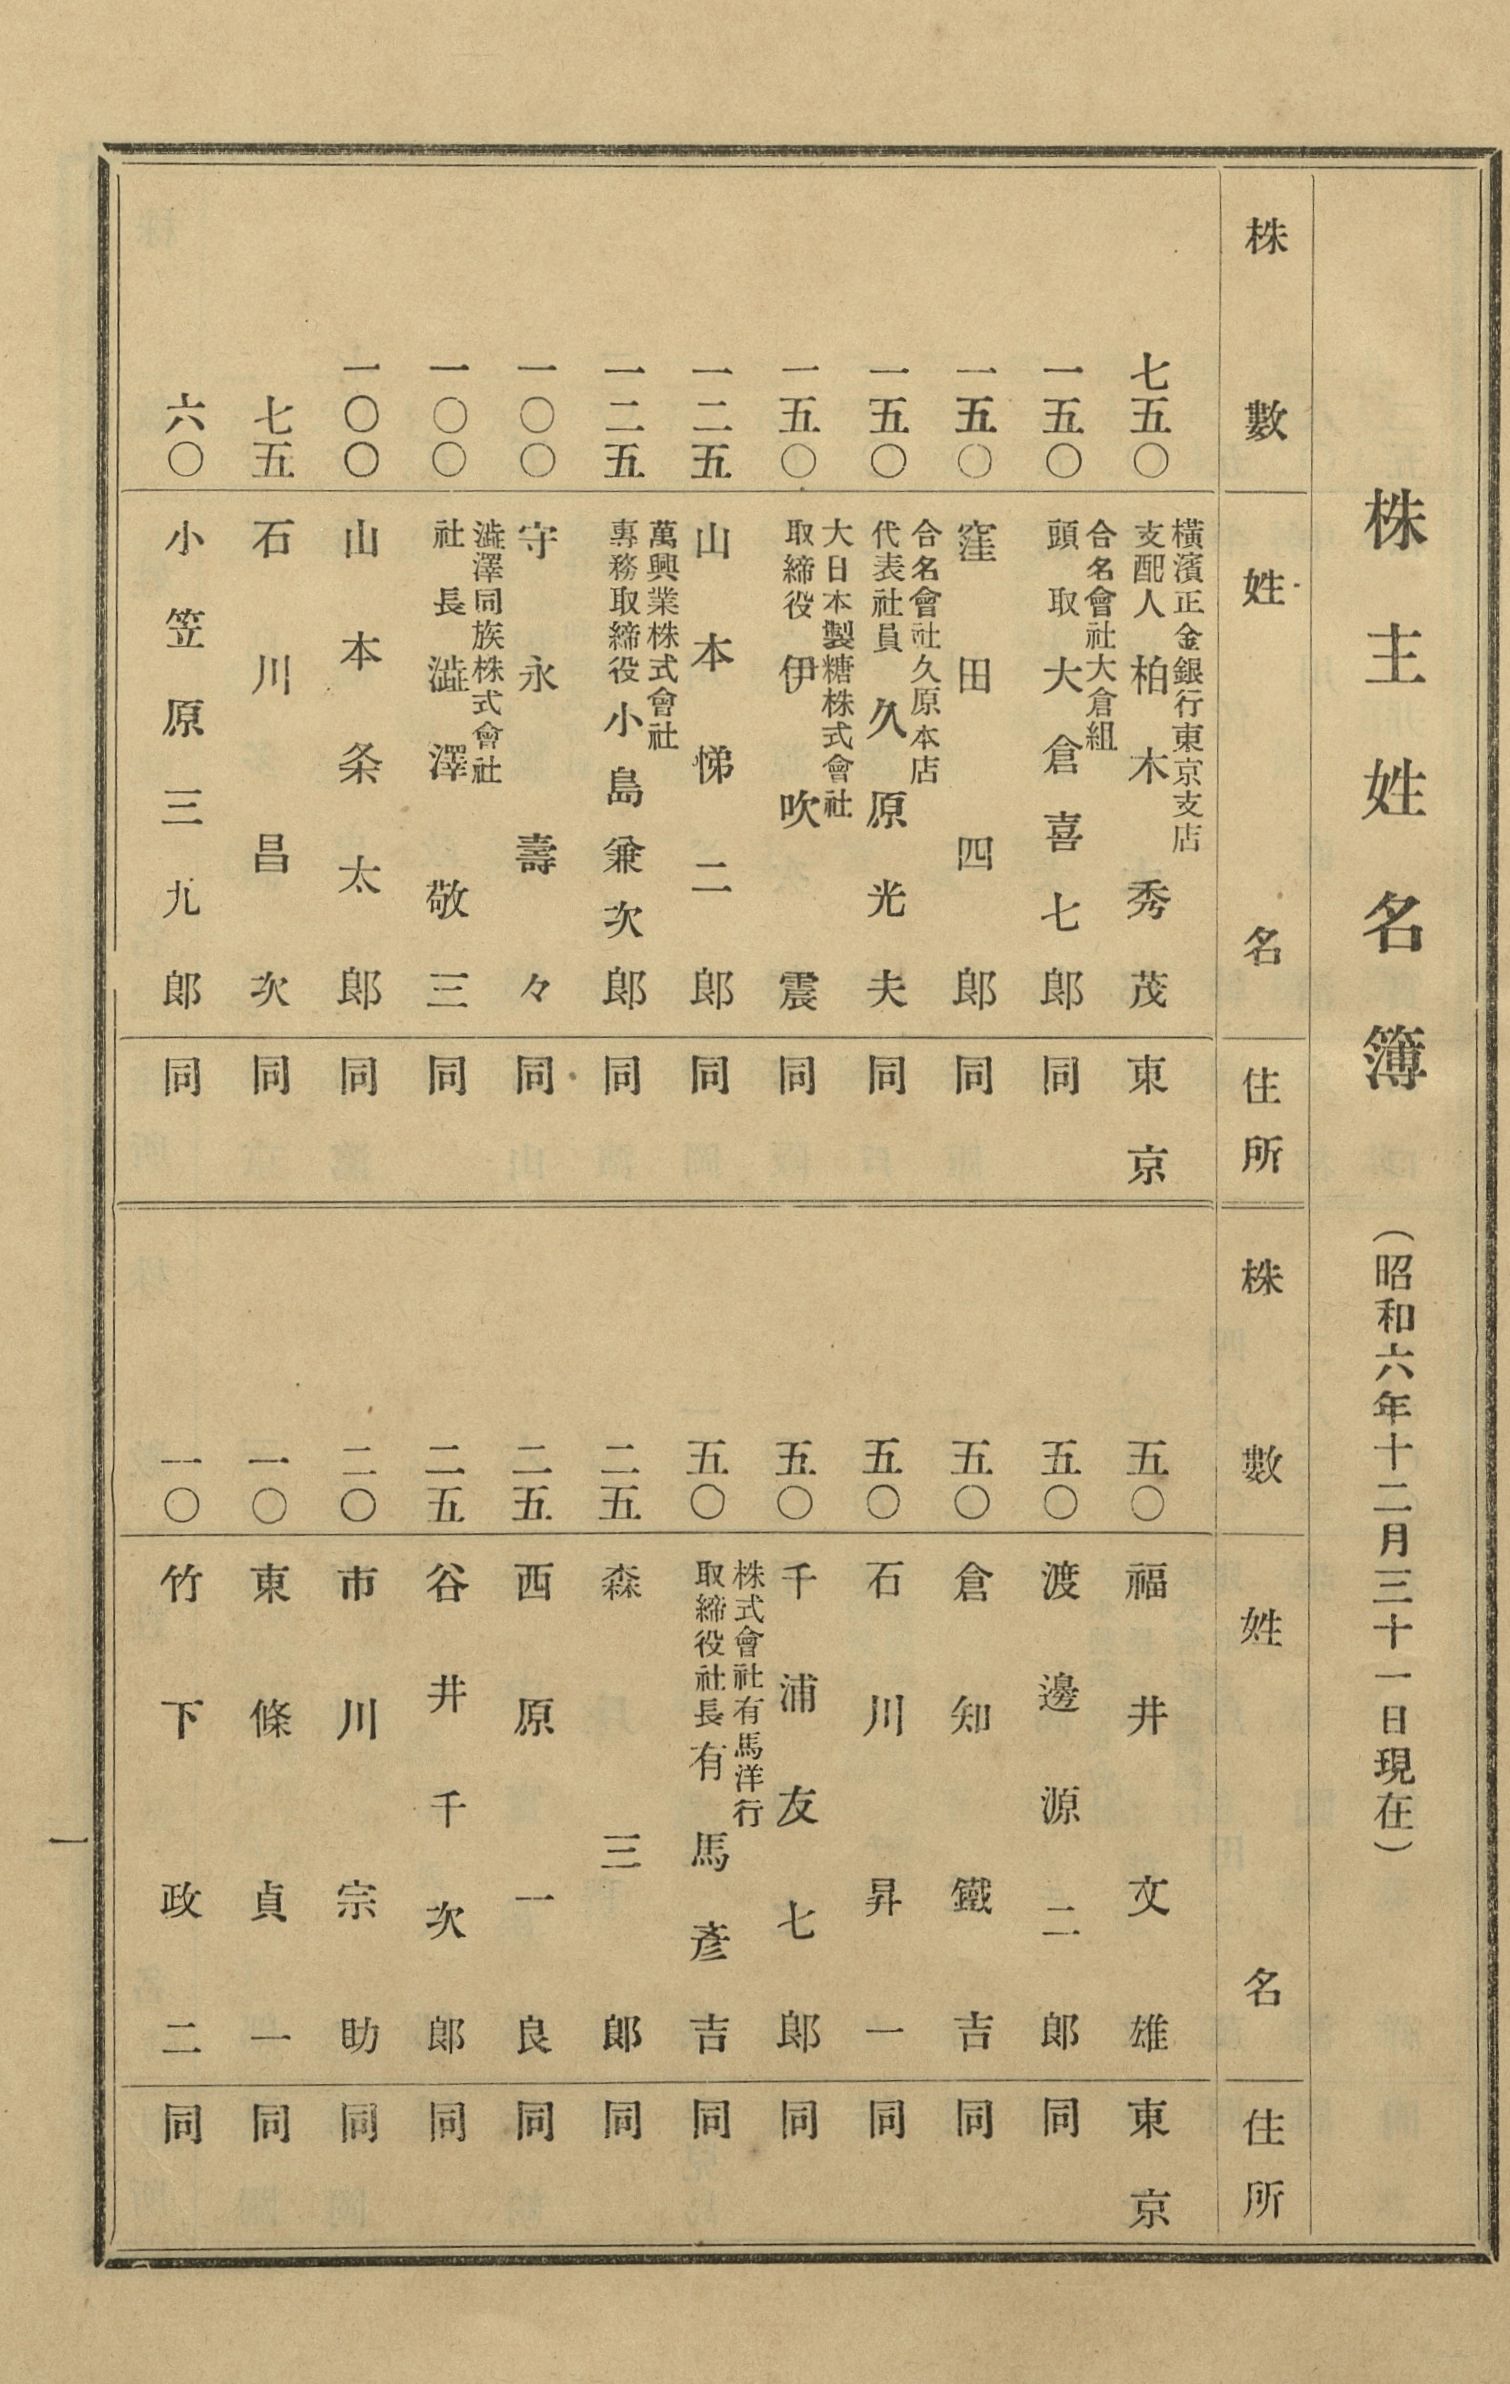 株主姓名簿 (昭和六年十二月三十一日現在)
株數 姓名 住所
七五〇 橫濱正金銀行東京支店支配人 柏木秀茂 東京
一五〇 合名會社大倉組頭取 大倉喜七郎 同
一五〇 窪田四郎 同
一五〇 合名會社久原本店代表社員 久原光夫 同
一五〇 大日本製糖株式會社取締役 伊吹震 同
一二五 山本悌二郎 同
一二五 萬興業株式會社專務取締役 小島兼次郎 同
一〇〇 守永壽々 同
一〇〇 澁澤同族株式會社社長 澁澤敬三 同
一〇〇 山本条太郎 同
七五 石川昌次 同
六〇 小笠原三九郎 同
株數 姓名 住所
五〇 福井文雄 東京
五〇 渡邊源二郎 同
五〇 倉知鐵吉 同
五〇 石川昇一 同
五〇 千浦友七郎 同
五〇 株式會社有馬洋行取締役社長 有馬彥吉 同
二五 森三郎 同
二五 西原一良 同
二五 谷井千次郎 同
二〇 市川宗助 同
一〇 東條貞一 同
一〇 竹下政二 同
一